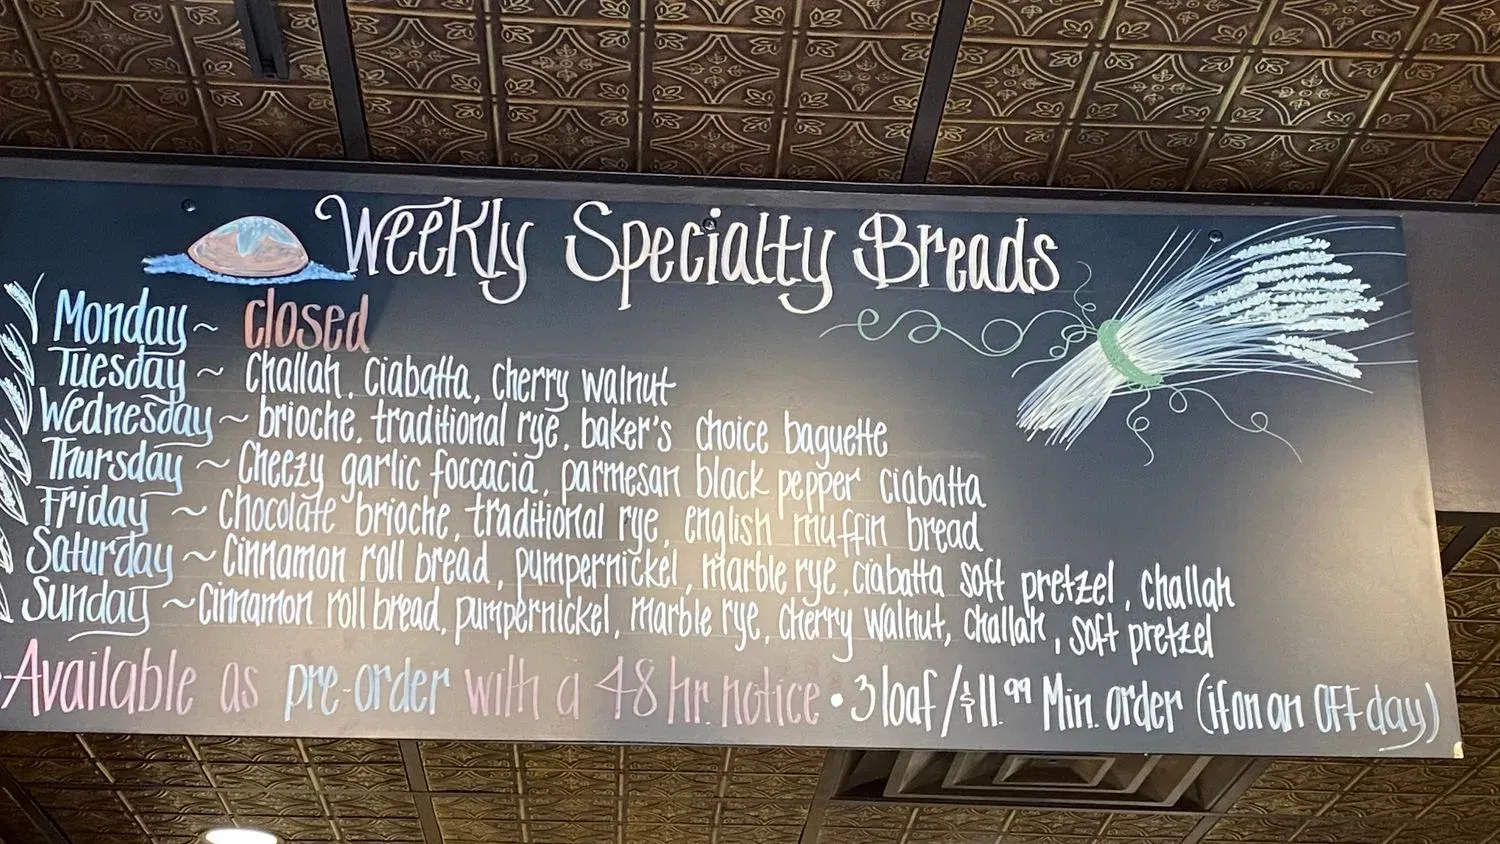 Weekly Specialty Breads
Monday ~ closed
Tuesday ~ challah, ciabatta, cherry walnut
Wednesday ~ brioche, traditional rye, baker's choice baguette
Thursday ~ Cheezy garlic foccacia, parmesan black pepper ciabatta
Friday ~ Chocolate brioche, traditional rye, english muffin bread
Saturday ~ Cinnamon roll bread, pumpernickel, marble rye, ciabatta soft pretzel, challah
Sunday ~ Cinnamon roll bread, pumpernickel, marble rye, cherry walnut, challah, soft pretzel
Available as pre-order with a 48 hr. notice • 3 loaf/$11.99 Min. order (if on an OFF day)